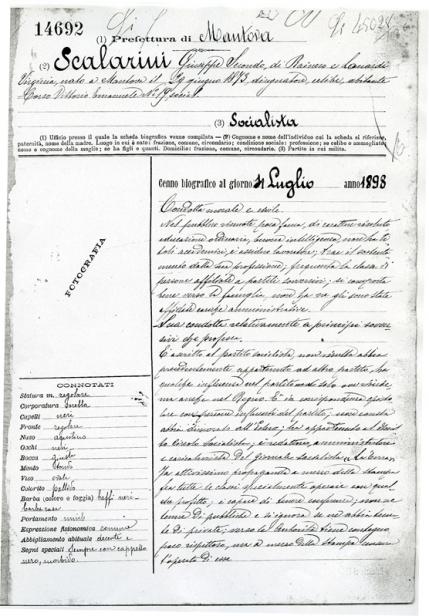 14692
(1) Prefettura di Mantova
(2) Scalarini Giuseppe Secondo, di Rainero e
Virginia, nato a Mantova il 29 gennaio 1873, disegnatore, celibe, abitante
Corso Vittorio Emanuele N.º 19
(3) Socialista
(1) Ufficio presso il quale la scheda biografica venne compilata — (2) Cognome e nome dell'individuo cui la scheda si riferisce,
paternità, nome della madre. Luogo in cui è nato: frazione, comune, circondario; condizione sociale; professione; se celibe o ammogliato;
nome e cognome della moglie; se ha figli e quanti. Domicilio: frazione, comune, circondario. (3) Partito in cui milita.
Cenno biografico al giorno 31 Luglio anno 1898
FOTOGRAFIA
Condotta morale e civile
Nel pubblico riscuote poca fama, di carattere
educazione ordinaria, buona intelligenza non ha ti-
toli accademici, è assiduo lavoratore; trae il sostenta-
mento dalla sua professione, frequenta la
persone affiliate a partiti sovversivi; si comporta
bene verso la famiglia, non ha nè gli sono state
affidate cariche amministrative.
Sua condotta relativamente a principi sovver-
sivi che professa.
È ascritto al partito socialista, non risulta abbia
precedentemente appartenuto ad altro partito, ha
qualche influenza nel partito non solo ove risiede
ma anche nel Regno. È in corrispondenza
con persone influenti del partito; non consta
abbia dimorato all'Estero; ha appartenuto al
Circolo Socialista; è redattore, amministratore
e caricaturista del giornale socialista
Fa attivissima propaganda a mezzo della stampa
fra tutte le classi specialmente operaie con qual-
che profitto, è capace di tenere conferenze;
di pubbliche e si ignora se ne abbia tenu-
te di private; verso le Autorità tiene contegno
poco rispettoso, ma a mezzo della stampa
l'operato di esse
CONNOTATI
Statura m. regolare
Corporatura snella
Capelli neri
Fronte regolare
Naso aquilino
Occhi neri
Bocca giusta
Mento tondo
Viso ovale
Colorito pallido
Barba (colore e foggia) baffi neri
barba rasa
Portamento
Espressione fisionomica comune
Abbigliamento abituale decente e
Segni speciali sempre con cappello
nero, morbido